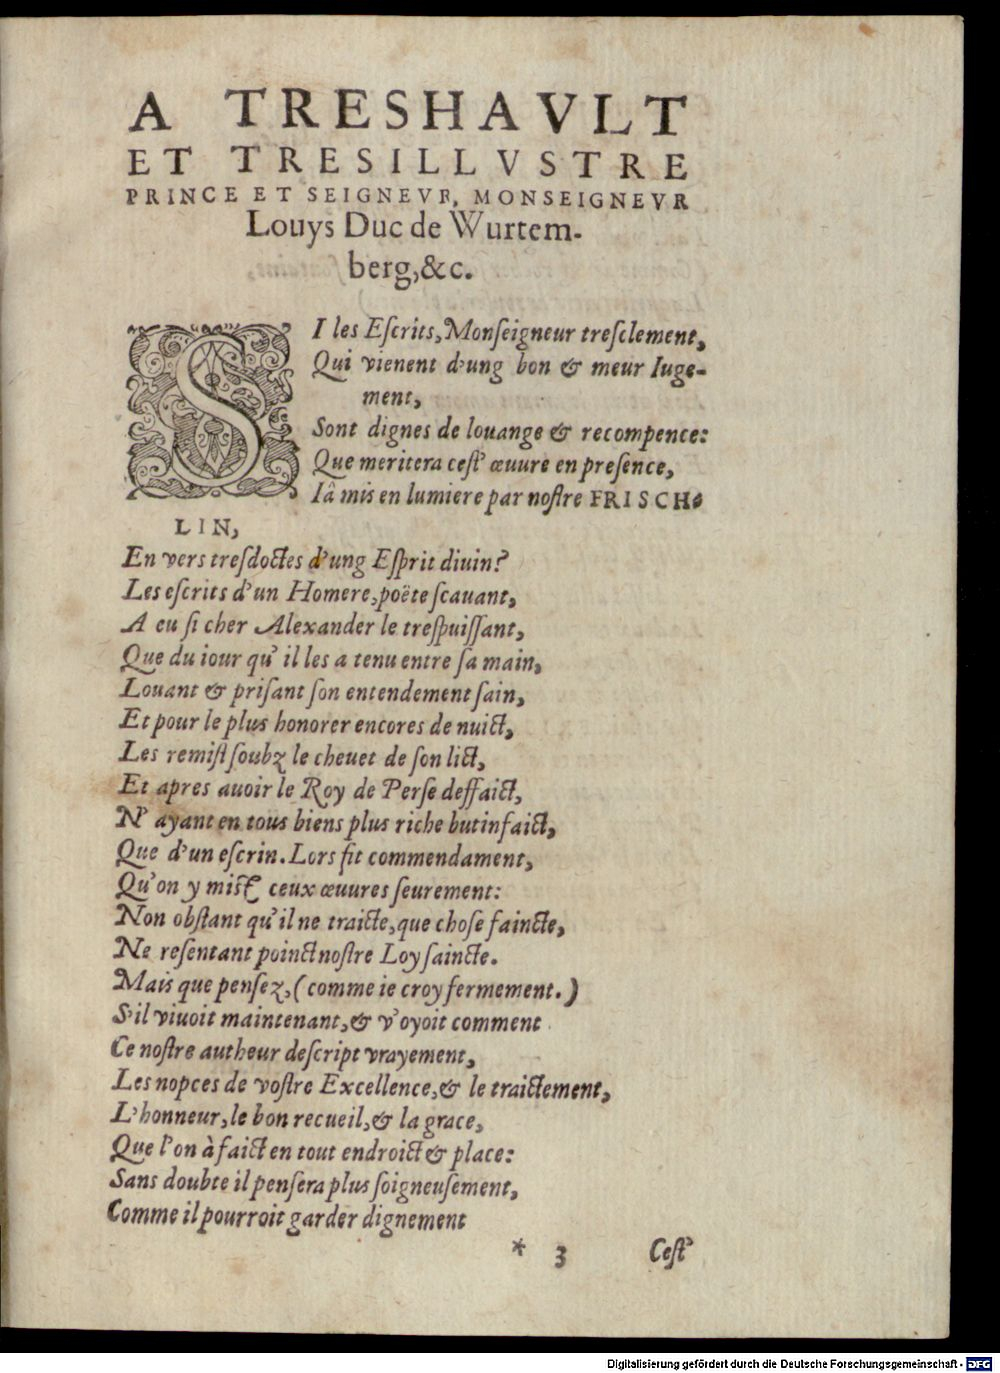 A TRESHAVLT
ET TRESILLVSTRE
PRINCE ET SEIGNEVR, MONSEIGNEVR
Louys Duc de Wurtem-
berg, &c.
SI les Eſcrits, Monſeigneur treſclement,
Qui vienent d'ung bon & meur Iuge-
ment,
Sont dignes de louange & recompence:
Que meritera ceſt' œuure en preſence,
Iâ mis en lumiere par noſtre FRISCH-
LIN,
En vers treſdoctes d'ung Eſprit diuin?
Les eſcrits d'un Homere, poëte ſcauant,
A eu ſi cher Alexander le treſpuiſſant,
Que du iour qu'il les a tenu entre ſa main,
Louant & priſant ſon entendement ſain,
Et pour le plus honorer encores de nuict,
Les remiſt ſoubz le cheuet de ſon lict,
Et apres auoir le Roy de Perſe deffaict,
N'ayant en tous biens plus riche butin faict,
Que d'un eſcrin. Lors fit commendament,
Qu'on y miſt ceux œuures ſeurement:
Non obſtant qu'il ne traicte, que choſe faincte,
Ne reſentant poinct noſtre Loy ſaincte.
Mais que penſez, (comme ie croy fermement.)
S'il viuoit maintenant, & v'oyoit comment
Ce noſtre autheur deſcript vrayement,
Les nopces de voſtre Excellence, & le traictement,
L'honneur, le bon recueil, & la grace,
Que l'on à faict en tout endroict & place:
Sans doubte il penſera plus ſoigneuſement,
Comme il pourroit garder dignement
* 3 Ceſt'
Digitalisierung gefördert durch die Deutsche Forschungsgemeinschaft - DFG